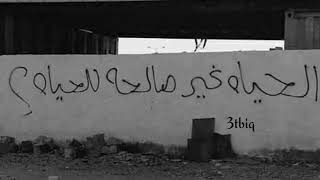 الحياه غير صالحه للحياه ؟
3tbiq